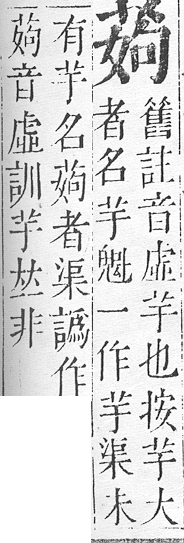 舊註音虛芋也按芋大
者名芋魁一作芋渠未
有芋名者渠譌作
音虛訓芋𠀤非